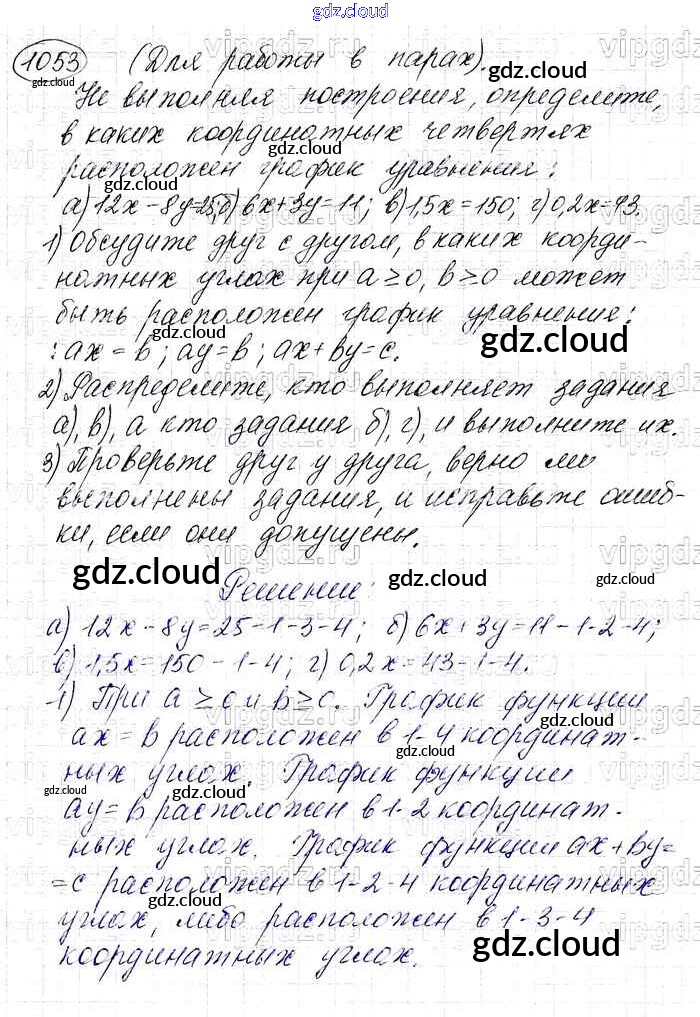 gdz.cloud
1053 (Для работы в парах).
Не выполняя построения, определите,
в каких координатных четвертях
расположен график уравнения:
а) 12x-8y=25; б) 6x+3y=11; в) 1,5x=150; г) 0,2x=43.
1) Обсудите друг с другом, в каких коорди-
натных углах при a≥0, b≥0 может
быть расположен график уравнения:
: ax = b; ay=b; ax+by=c.
2) Распределите, кто выполняет задания
а), в), а кто задания б), г), и выполните их.
3) Проверьте друг у друга, верно ли
выполнены задания, и исправьте ошиб-
ки, если они допущены.
gdz.cloud
Решение:
а) 12x-8y=25-1-3-4; б) 6x+3y=11-1-2-4;
в) 1,5x=150-1-4; г) 0,2x=43-1-4.
1) При a≥0 и b≥0. График функции
ax=b расположен в 1-4 координат-
ных углах. График функции
ay=b расположен в 1-2 координат-
ных углах. График функции ax+by=
=c расположен в 1-2-4 координатных
углах, либо расположен в 1-3-4
координатных углах.
gdz.cloud